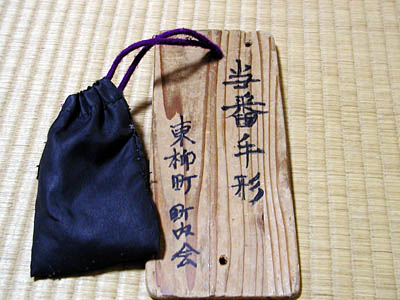 当番手形
東柳町町内会